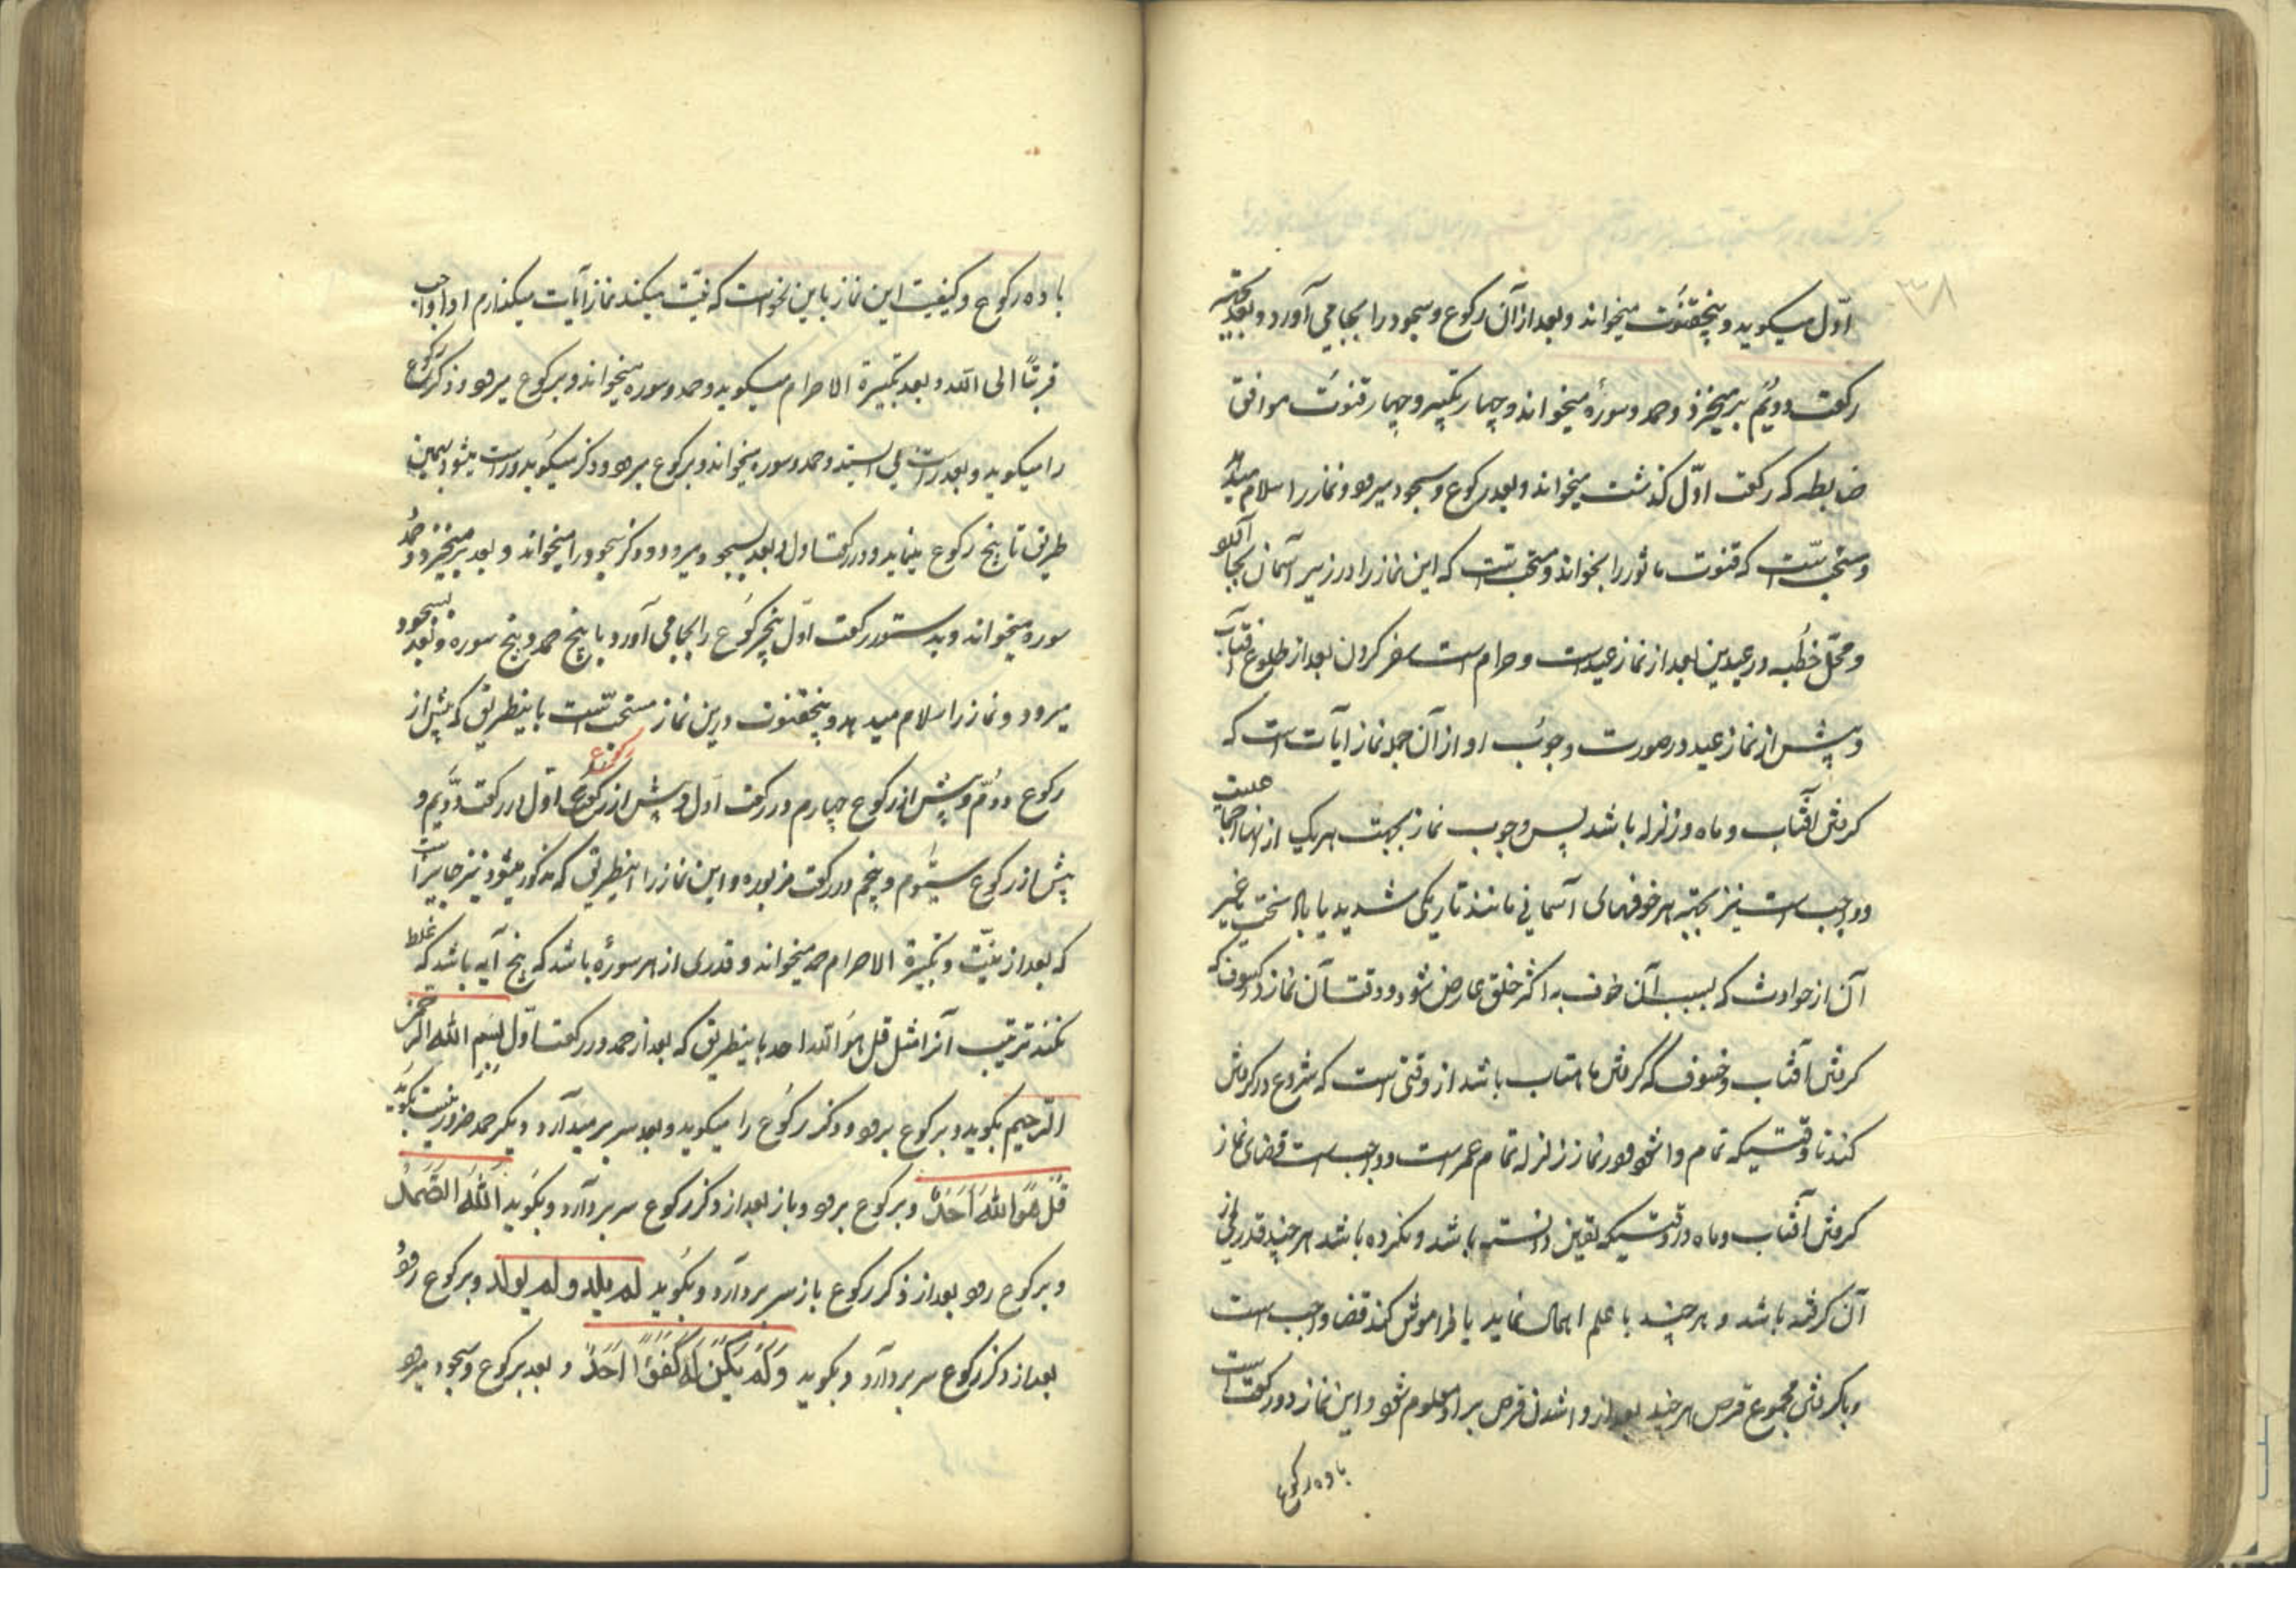 ۳۸
اوّل میکوید و پنجقنوت میخواند و بعد از آن رکوع و سجود را بجا می آورد و بعد که
رکعت دویّم برمیخیزد و حمد و سورهٔ میخواند و چهار تکبیر و چهار قنوت موافق
ضابطه که رکعت اوّل کذشت میخواند و بعد رکوع و سجود میرود و نماز را سلام میدهد
و مستحبّست که قنوت ماثور را بخواند و مستحبّست که این نماز را در زیر آسمان بجا آورد
و محلّ خُطبه در عیدین بعد از نماز عیدست و حرام است سفر کردن بعد از طلوع آفتاب
و پیش از نماز عید در صورت وجوب او از آن جمله نماز آیات است که
کرفتن آفتاب و ماه و زلزله باشد پس وجوب نماز بجهت هریک از اینها اجماعیست
و واجب است نیز بجهت هر خوفهای آسمانی مانند تاریکی شدید یا باد سخت و غیر
آن از حوادث که بسبب آن خوف به اکثر خلق عارض شود و وقت آن نماز در کسوف که
کرفتن آفتاب و خسوف که کرفتن ماهتاب باشد از وقتی است که شروع در کرفتن
کند تا وقتیکه تمام وا شود و در نماز زلزله تمام عمرست و واجب است قضای نماز
کرفتن آفتاب و ماه در وقتیکه یقین دانسته باشد و نکرده باشد هر چند قدری از
آن کرفته باشد و هر چند با علم اهمال نماید یا فراموش کند قضا واجب است
و با کرفتن مجموع قرص هر چند بعد از وا شدن قرص بر او معلوم شود و این نماز دو رکعت است
با ده رکوع
با ده رکوع و کیفیت این نماز باین نحو است که نیّت میکند نماز آیات میکذارم ادا واجب
قربتًا الی الله و بعد تکبیرة الاحرام میکوید و حمد و سوره میخواند و برکوع میرود و ذکر رکوع
را میکوید و بعد راست می ایستد و حمد و سوره میخواند و برکوع میرود و ذکر میکوید و راست میشود بهمین
طریق تا پنج رکوع مینماید و در رکعت اول و بعد بسجود میرود و ذکر سجود را میخواند و بعد برمیخیزد و حمد و
سوره میخواند و بدستور رکعت اوّل پنج رکوع را بجا می آورد با پنج حمد و پنج سوره و بعد بسجود
میرود و نماز را سلام میدهد و پنجقنوت درین نماز مستحبّست باینطریق که پیش از
رکوع دوّم و پیش از رکوع چهارم در رکعت اوّل و پیش از رکوع اوّل در رکعت دوّیم و
رکوع
پیش از رکوع سیّوم و پنجم در رکعت مزبوره و این نماز را باینطریق که مذکور میشود نیز جایز است
که بعد از نیّت و تکبیرة الاحرام حمد میخواند و قدری از هر سورهٔ باشد که پنج آیه باشد که غلط
نکند ترتیب آنرا مثل قل هو الله احد باینطریق که بعد از حمد در رکعت اوّل بسم الله الرحمن
الرّحیم بکوید و برکوع برود و ذکر رکوع را میکوید و بعد سر بر میدارد و دیکر حمد ضرور نیست بکوید
قُل هُوَ اللهُ اَحَدٌ و برکوع برود و باز بعد از ذکر رکوع سر بردارد و بکوید اَللهُ الصَّمَدُ
و برکوع رود بعد از ذکر رکوع باز سر بردارد و بکوید لم یلد و لم یولد و برکوع رود
بعد از ذکر رکوع سر بردارد و بکوید وَ لَم یَکُن لَهُ کُفُوًا اَحَدٌ و بعد برکوع و سجود میرود